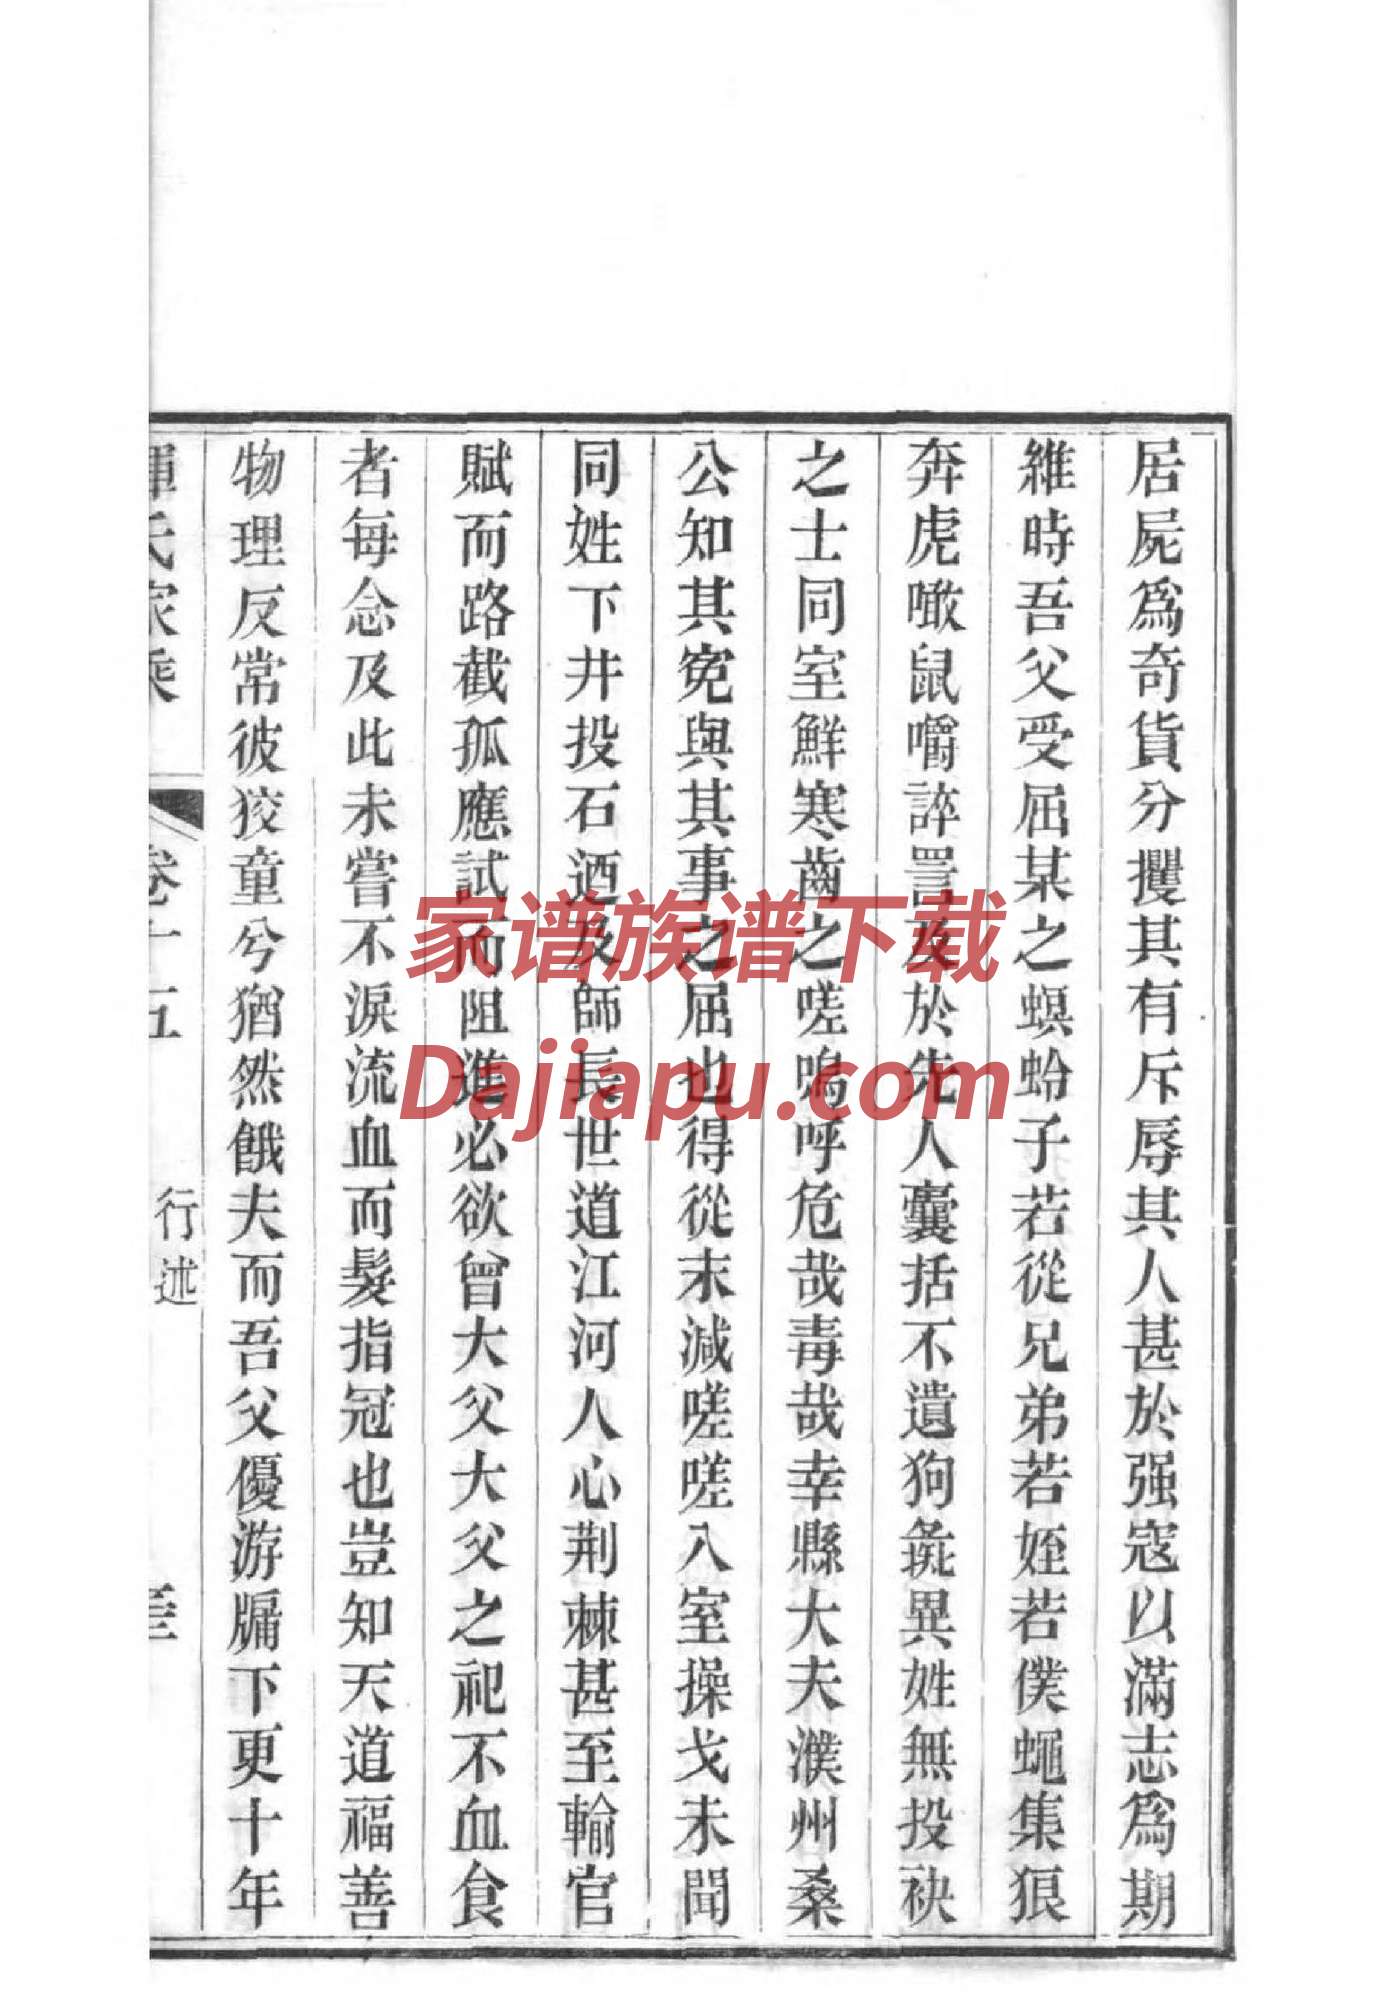 居屍爲奇貨分攫其有斥辱其人甚於强寇以滿志爲期
維時吾父受屈某之螟蛉子若從兄弟若姪若僕蠅集狼
奔虎噉鼠嚼誶詈及於先人囊括不遺狗彘異姓無投袂
之士同室鮮寒齒之嗟嗚呼危哉毒哉幸縣大夫濮州桑
公知其寃與其事之屈也得從末減嗟嗟入室操戈未聞
同姓下井投石迺及師長世道江河人心荆棘甚至輸官
賦而路截孤應試而阻進必欲曾大父大父之祀不血食
者每念及此未嘗不淚流血而髮指冠也豈知天道福善
物理反常彼狡童兮猶然餓夫而吾父優游牖下更十年
氏家乘
卷十五
行述
家谱族谱下载
Dajiapu.com